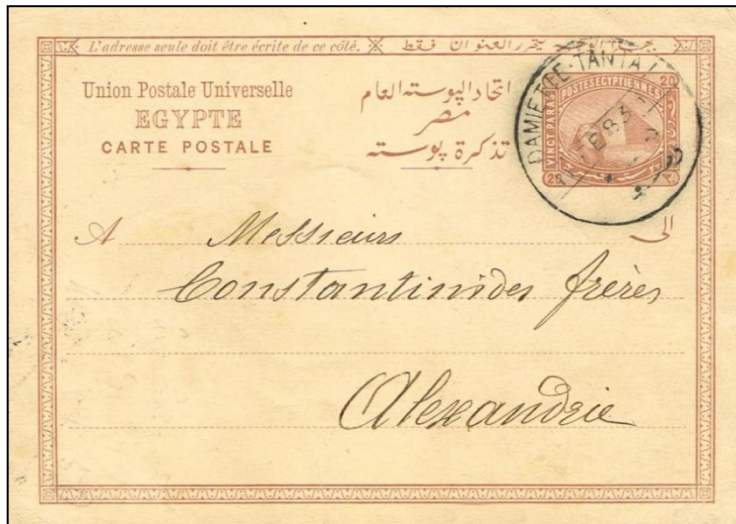 L'adresse seule doit être écrite de ce côté.
العنوان فقط
Union Postale Universelle
EGYPTE
CARTE POSTALE
اتحاد البوسته العام
مصر
تذكرة بوسته
20
POSTES EGYPTIENNES
VINGT PARAS
20
DAMIETTE-TANTA
A Messieurs الى
Constantinides frères
Alexandrie